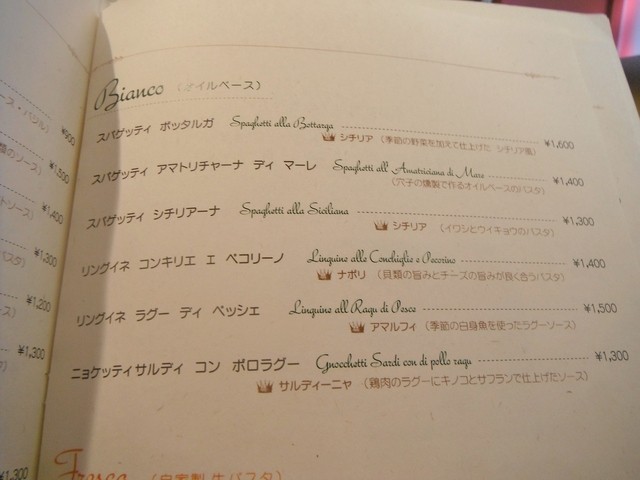 Bianco (オイルベース)
スパゲッティ ボッタルガ Spaghetti alla Bottarga ¥1,600
シチリア (季節の野菜を加えて仕上げた シチリア風)
スパゲッティ アマトリチャーナ ディ マーレ Spaghetti all' Amatriciana di Mare ¥1,400
(穴子の燻製で作るオイルベースのパスタ)
スパゲッティ シチリアーナ Spaghetti alla Siciliana ¥1,300
シチリア (イワシとウイキョウのパスタ)
リングイネ コンキリエ エ ペコリーノ Linguine alle Conchiglie e Pecorino ¥1,400
ナポリ (貝類の旨みとチーズの旨みが良く合うパスタ)
リングイネ ラグー ディ ペッシェ Linguine all Ragu di Pesce ¥1,500
アマルフィ (季節の白身魚を使ったラグーソース)
ニョケッティサルディ コン ポロラグー Gnocchetti Sardi con di pollo ragu ¥1,300
サルディーニャ (鶏肉のラグーにキノコとサフランで仕上げたソース)
Fresca (自家製生パスタ)
ース・バジル) ¥900
ソース) ¥1,500
トソース) ¥1,400
¥1,300
パスタ)
¥1,200
¥1,300
¥1,300